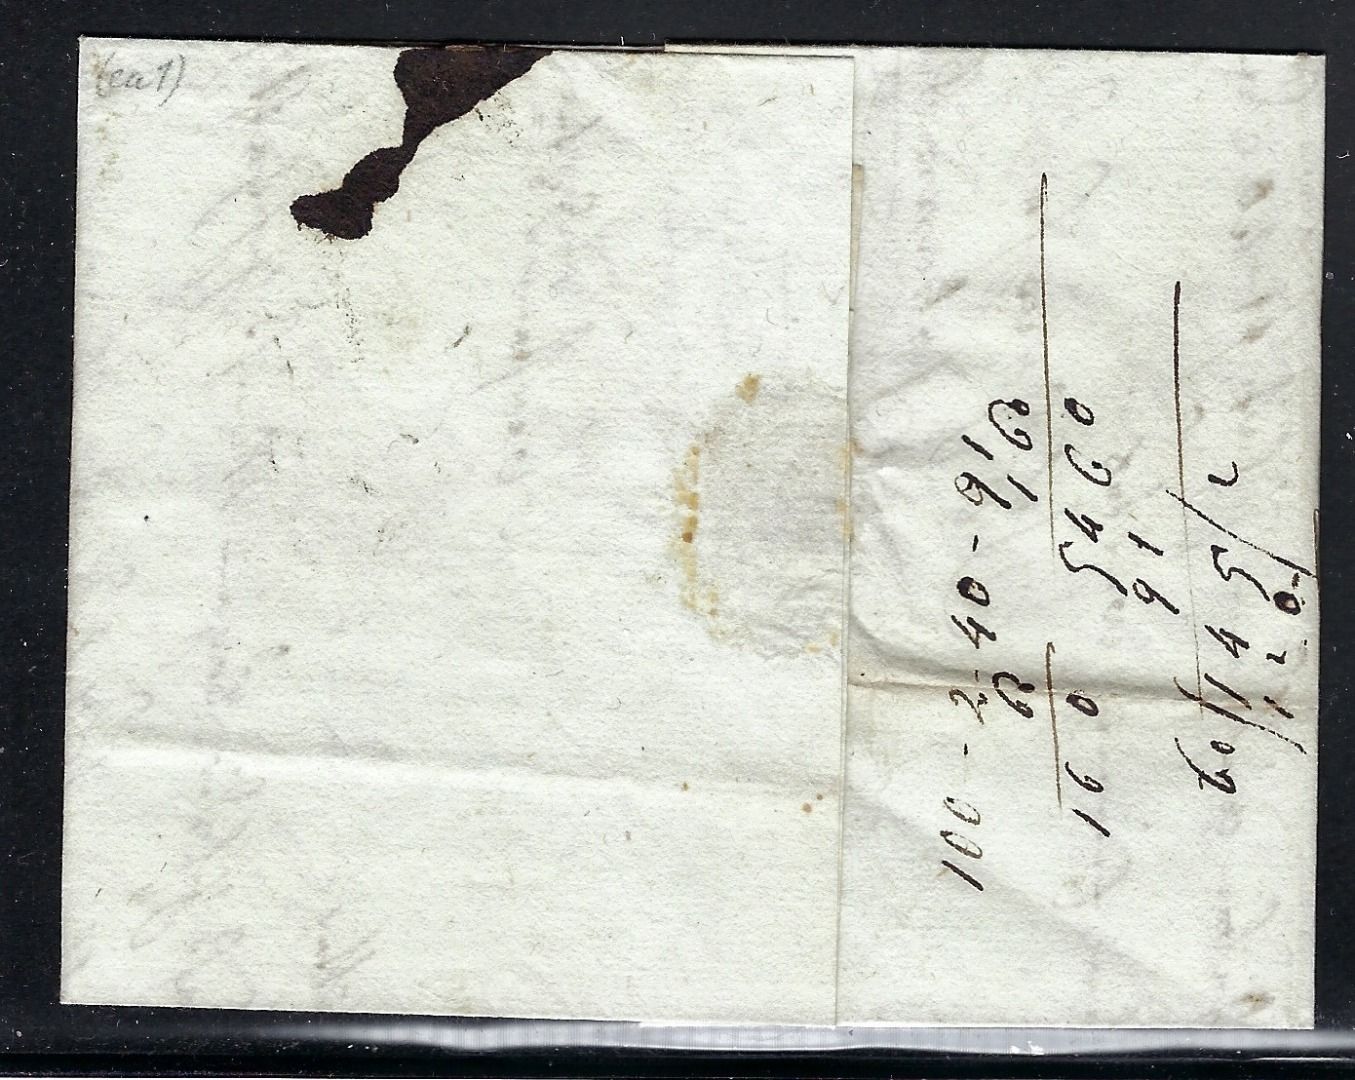 (ca 1)
100 - 2 - 40 - 91
60 160
160 5460
91
60/145/2
120